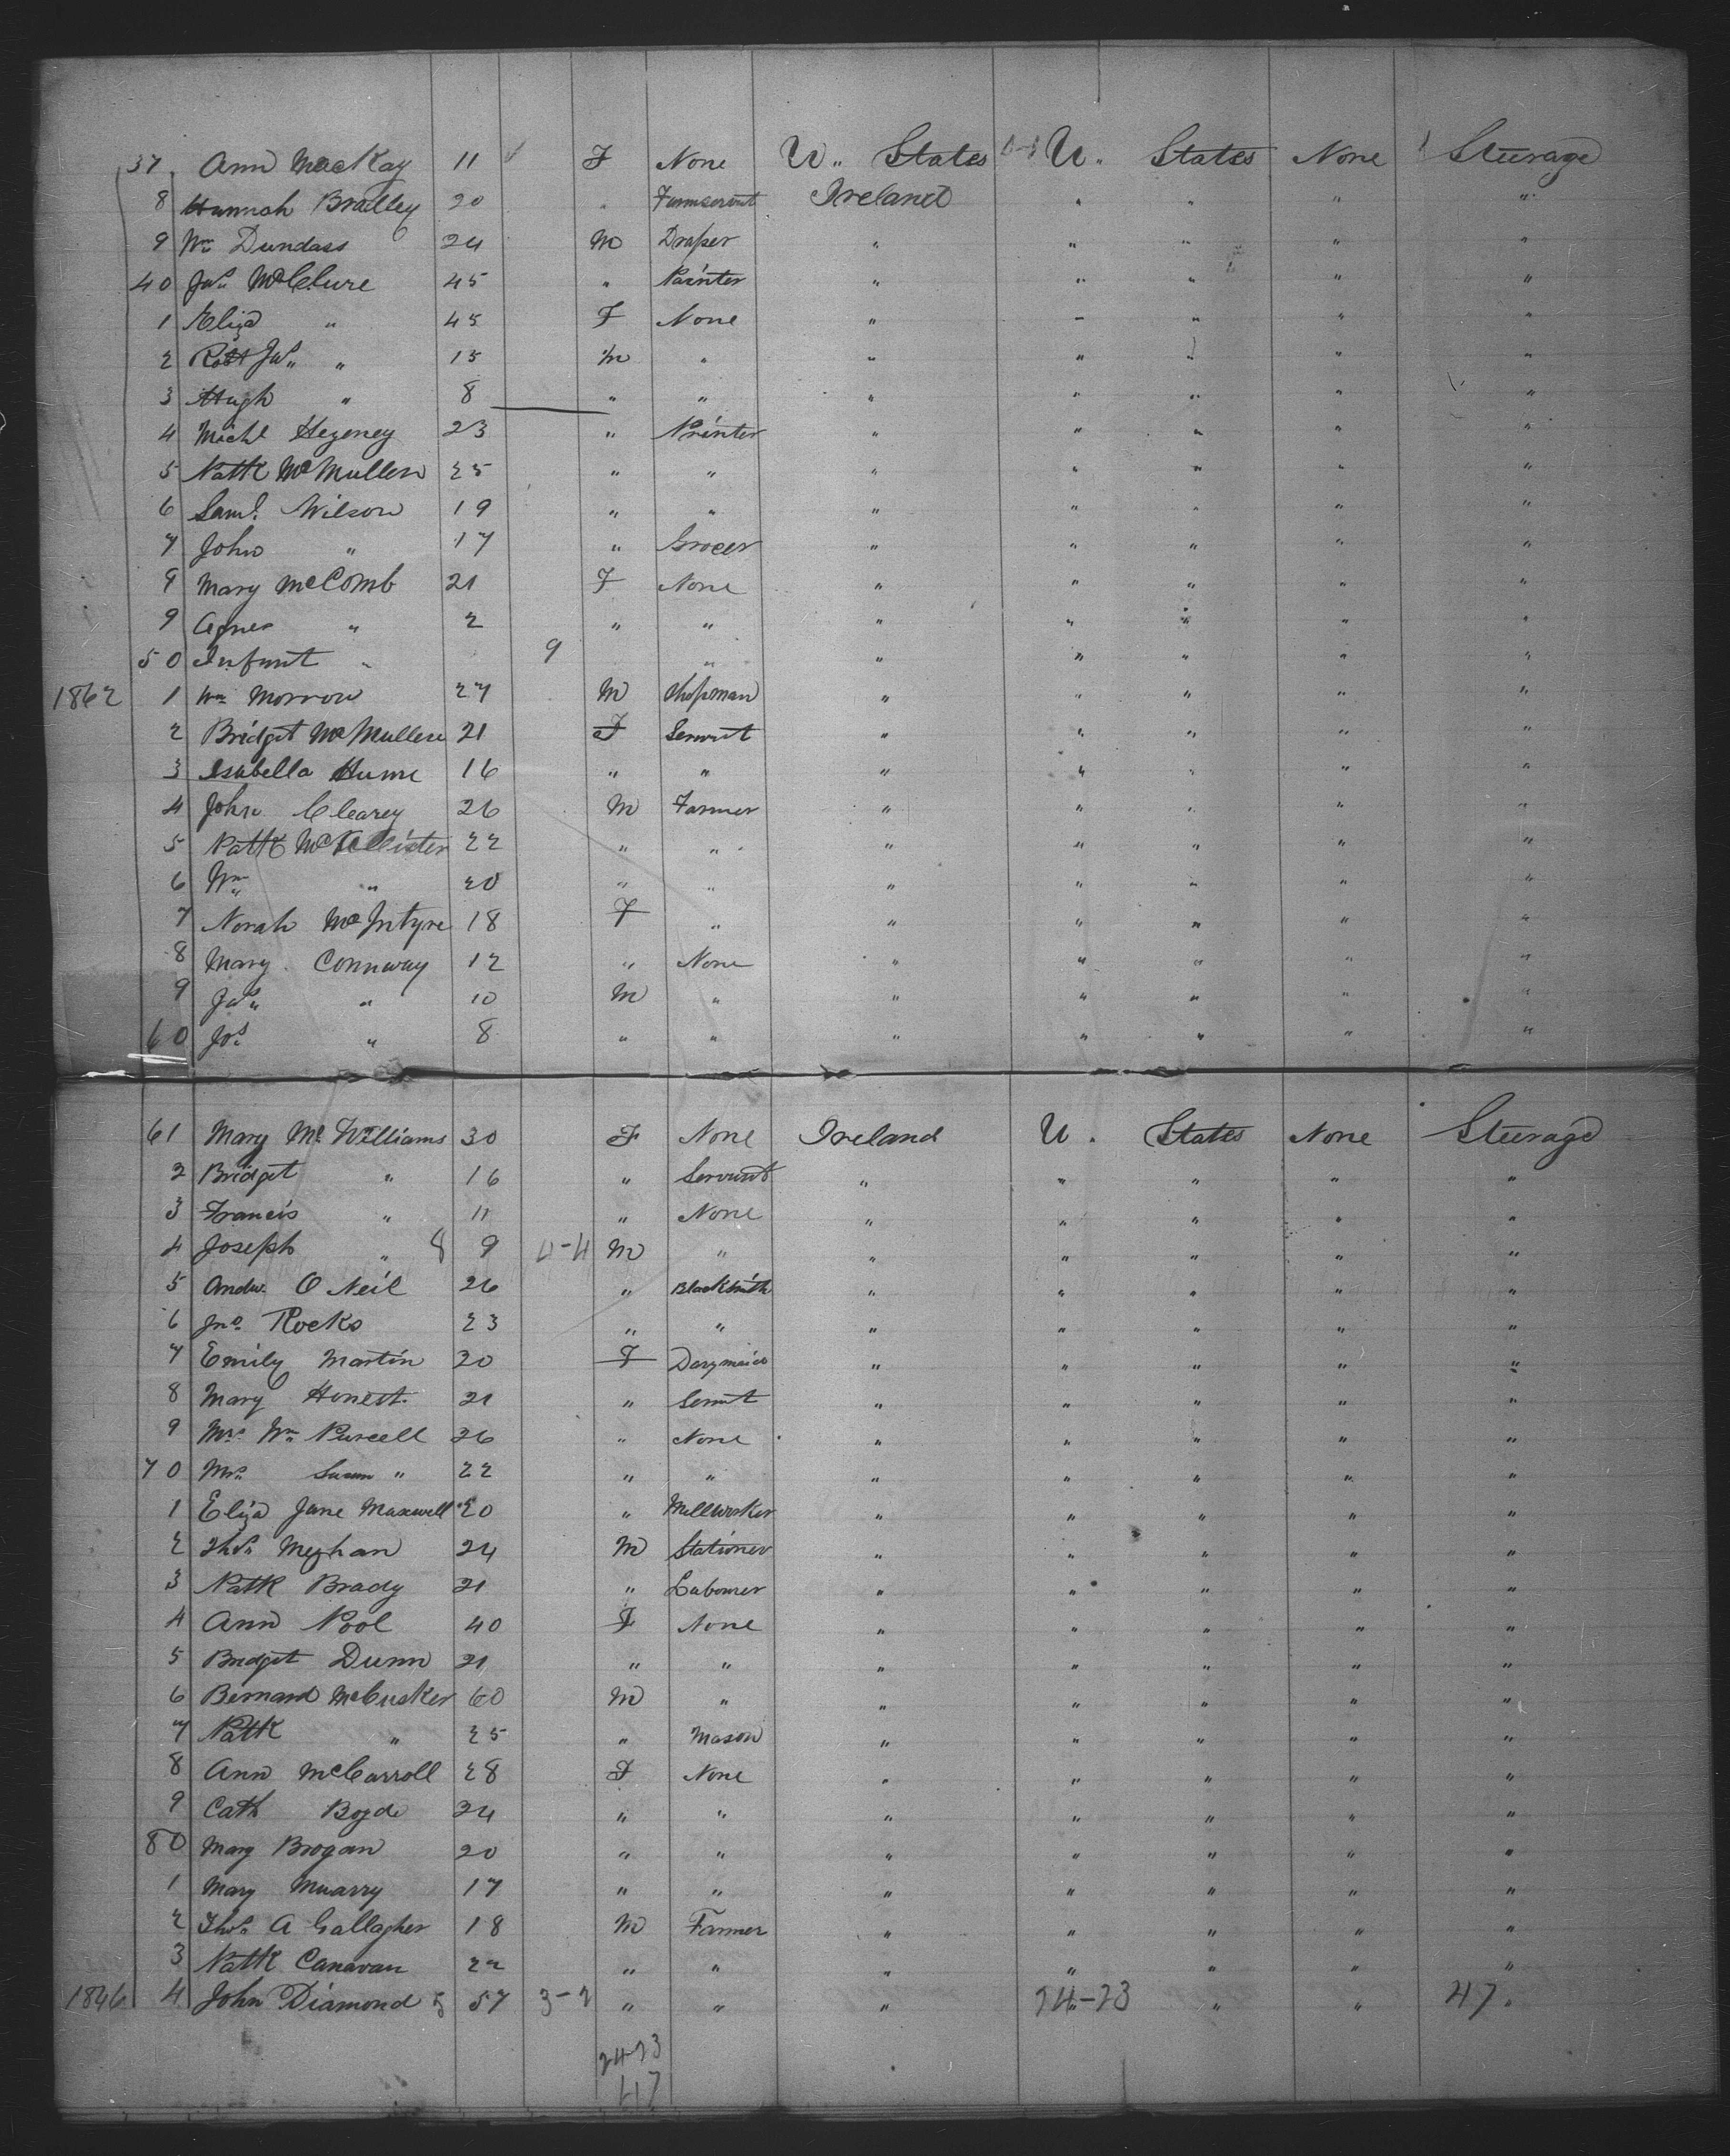 37. Ann MacKay 11 F None U.. States U. States None Steerage
8 Hannah Bradley 20 " Farmservnt Ireland " " " "
9 Wm Dundass 24 M Draper " " " " "
40 Jas McClure 45 " Painter " " " " "
1 Eliza " 45 F None " " " " "
2 Robt Jas " 15 M " " " " " "
3 Hugh " 8 " " " " " " "
4 Michl Hegeney 23 " Printer " " " " "
5 Patk McMullen 25 " " " " " " "
6 Saml. Wilson 19 " " " " " " "
7 John " 17 " Grocer " " " " "
9 Mary McComb 21 F None " " " " "
9 Agnes " 2 " " " " " " "
50 Infant " 9 " " " " " "
1862 1 Wm Morrow 27 M Shopman " " " " "
2 Bridget McMullen 21 F Servnt " " " " "
3 Isabella Hume 16 " " " " " " "
4 John Clearey 26 M Farmer " " " " "
5 Patk McAllister 22 " " " " " " "
6 Wm " 20 " " " " " " "
7 Norah McIntyre 18 F " " " " " "
8 Mary Connway 12 " None " " " " "
9 Jas " 10 M " " " " " "
60 Jos " 8 " " " " " " "
61 Mary Mc Williams 30 F None Ireland U. States None Steerage
2 Bridget " 16 " Servant " " " " "
3 Francis " 11 " None " " " " "
4 Joseph " 8 9 4-4 M " " " " " "
5 Andw. O Neil 26 " Blacksmith " " " " "
6 Jno Rocks 23 " " " " " " "
7 Emily Martin 20 F Darymaid " " " " "
8 Mary Honest. 21 " Servnt " " " " "
9 Mrs Wm Purcell 26 " None " " " " "
70 Mrs Susan " 22 " " " " " " "
1 Eliza Jane Maxwell 20 " Millworker " " " " "
2 Thos Meghan 24 M Stationer " " " " "
3 Patk Brady 21 " Labourer " " " " "
4 Ann Pool 40 F None " " " " "
5 Bridget Dunn 21 " " " " " " "
6 Bernard McCusker 60 M " " " " " "
7 Patk " 25 " Mason " " " " "
8 Ann McCarroll 28 F None " " " " "
9 Cath Boyde 24 " " " " " " "
80 Mary Brogan 20 " " " " " " "
1 Mary Muarry 17 " " " " " " "
2 Thos A Gallagher 18 M Farmer " " " " "
3 Patk Canavan 22 " " " " " " "
1846 4 John Diamond 5 57 3-2 " " " 24-23 " " 47 "
24-23
47